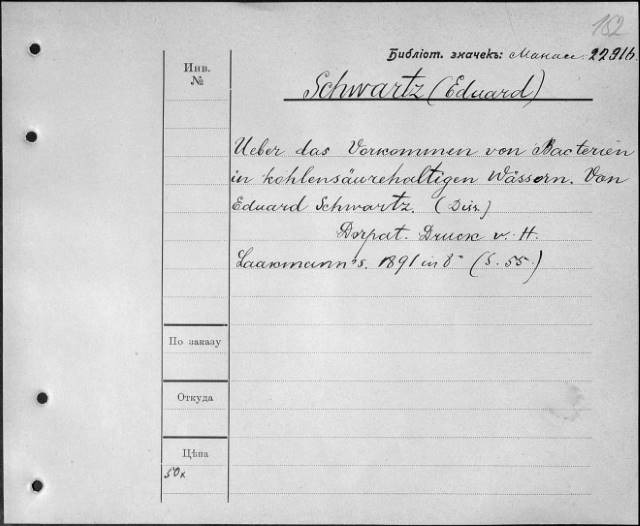 162
Библіот. значекъ: Манас. 22916.
Инв.
№
Schwartz (Eduard)
Ueber das Vorkommen von Bacterien
in kohlensäurehaltigen Wässern. Von
Eduard Schwartz. (Diss.)
Dorpat. Druck v. H.
Laakmann's. 1891 in 8° (S. 55.)
По заказу
Откуда
Цѣна
50к